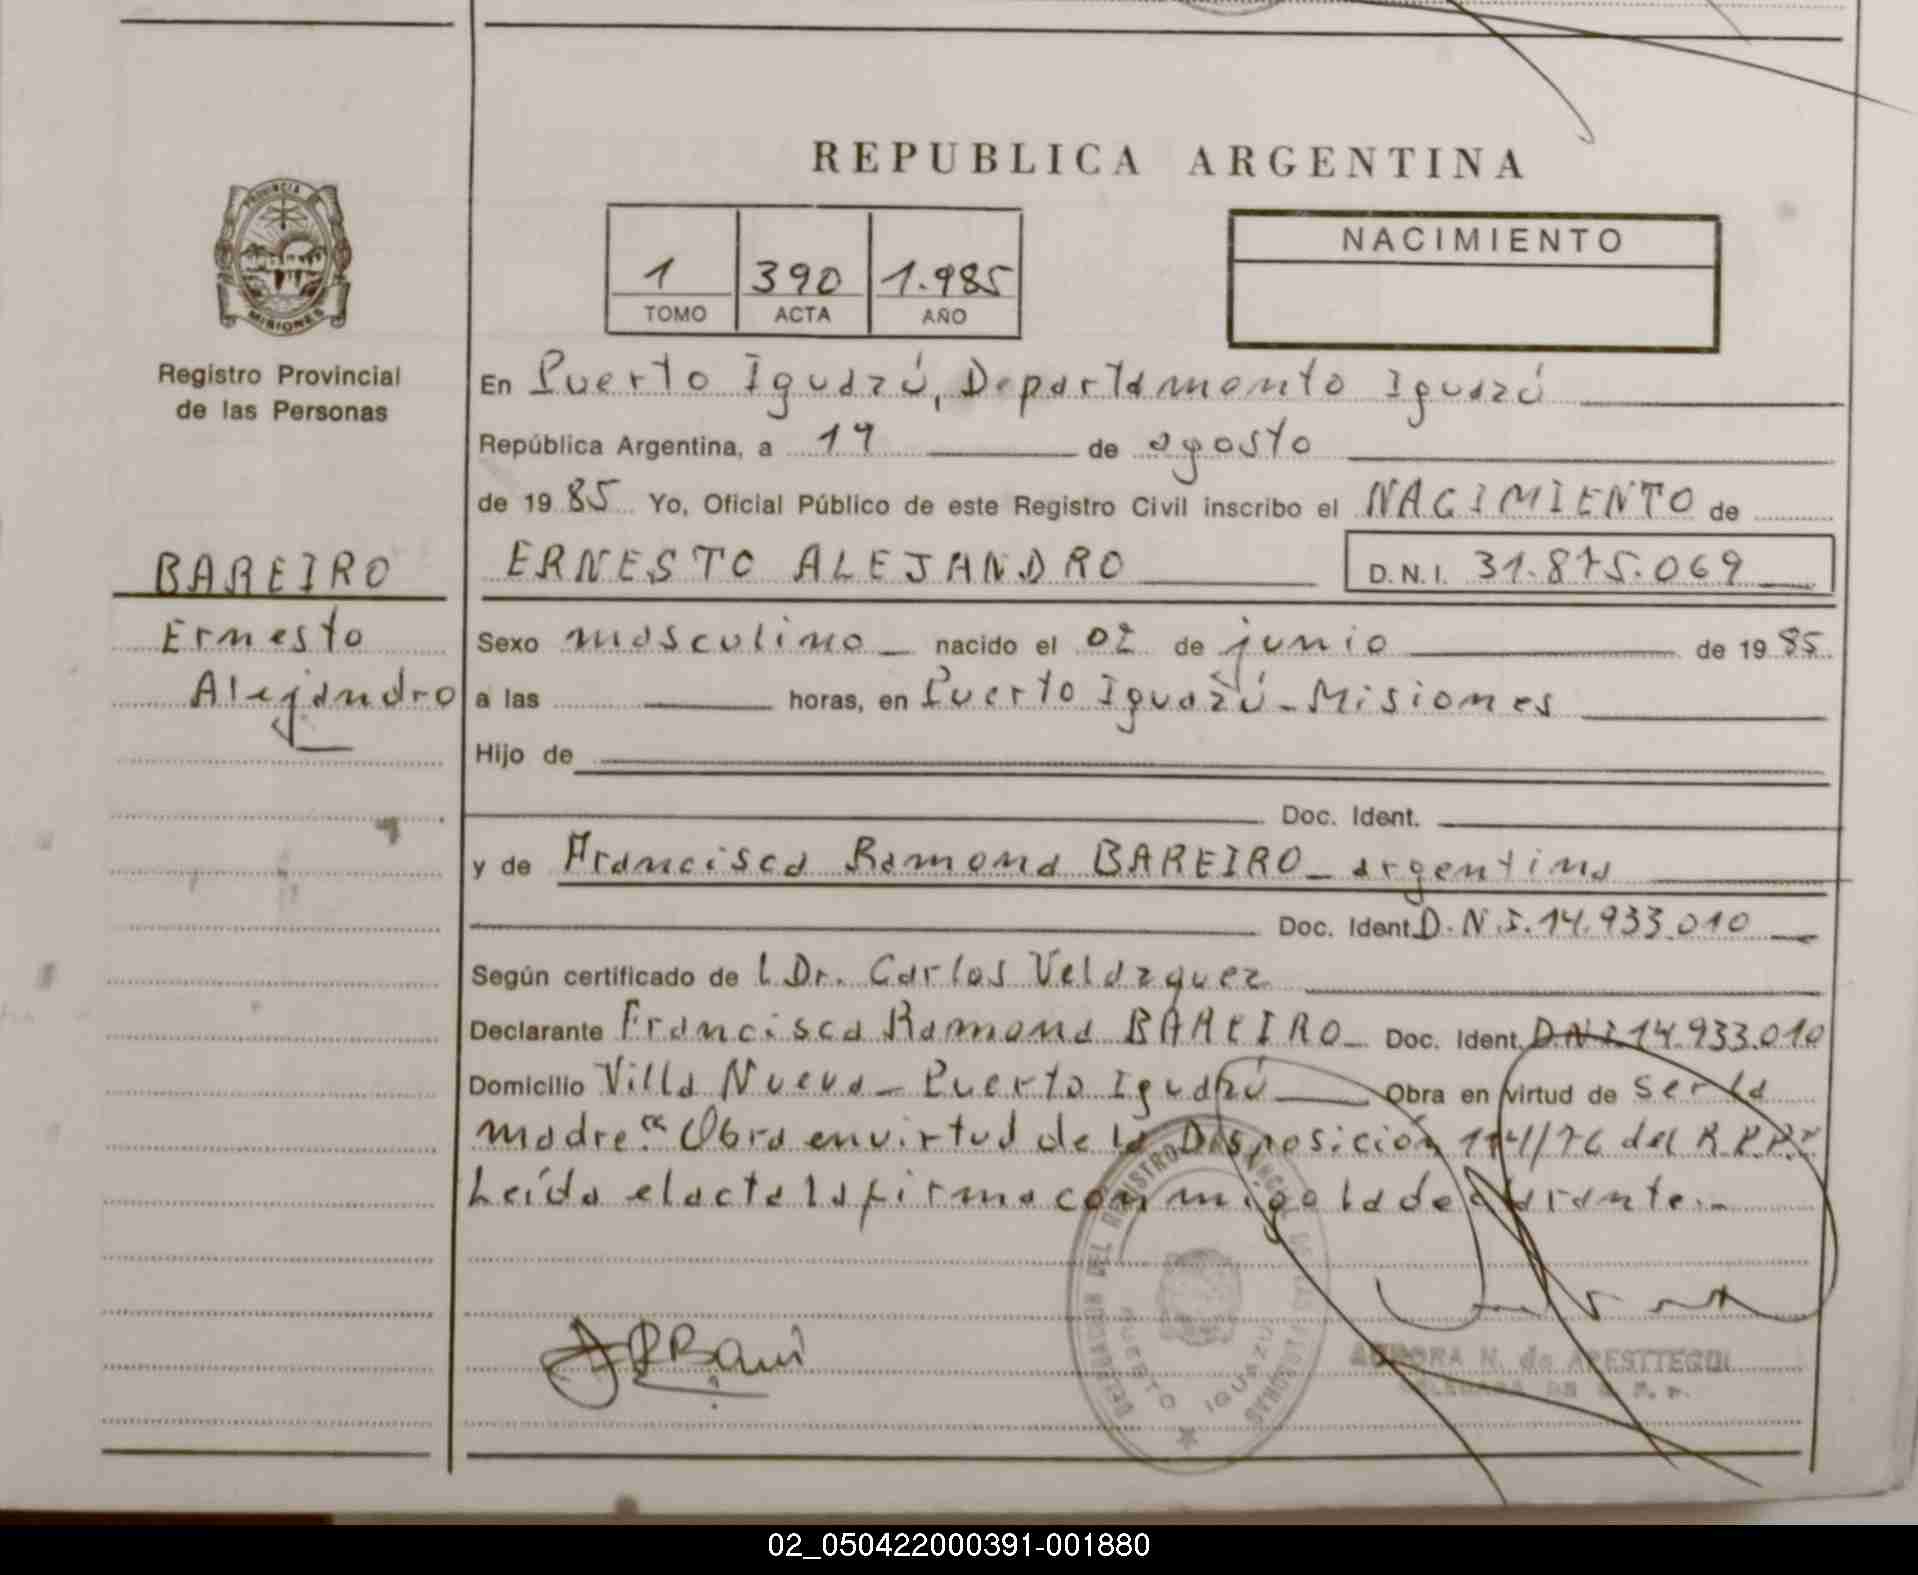 REPUBLICA ARGENTINA
PROVINCIA
MISIONES
Registro Provincial
de las Personas
1 390 1.985
TOMO ACTA AÑO
NACIMIENTO
En Puerto Iguazú, Departamento Iguazú
República Argentina, a 19 de agosto
de 1985 Yo, Oficial Público de este Registro Civil inscribo el NACIMIENTO de
BAREIRO
Ernesto
Alejandro
ERNESTO ALEJANDRO D.N.I. 31.875.069
Sexo masculino nacido el 02 de junio de 1985
a las horas, en Puerto Iguazú - Misiones
Hijo de
Doc. Ident.
y de Francisca Ramona BAREIRO - argentina
Doc. Ident. D.N.I. 14.933.010
Según certificado del Dr. Carlos Velazquez
Declarante Francisca Ramona BAREIRO - Doc. Ident. D.N.I. 14.933.010
Domicilio Villa Nueva - Puerto Iguazú Obra en virtud de ser la
madre." Obra en virtud de la Disposición 114/76 del R.P.P.
Leída el acta la firma conmigo la declarante.-
DELEGACION DEL REGISTRO PROVINCIAL DE LAS PERSONAS
PUERTO IGUAZU
AURORA N. de APESTTEGUI
02_050422000391-001880